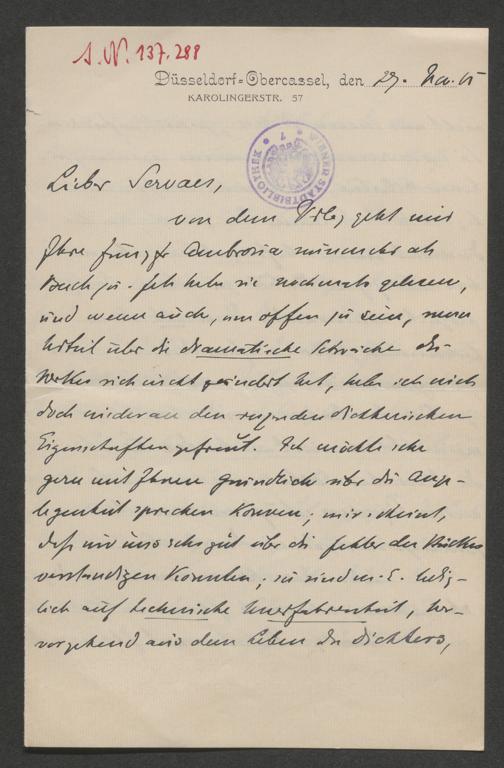 S. N. 137.288
Düsseldorf-Obercassel, den 29. Nov. 05
KAROLINGERSTR. 57
WIENER STADTBIBLIOTHEK
Lieber Servaes,
von dem Verlag geht mir
Ihre Jungfer Ambrosia nunmehr als
Buch zu. Ich habe sie nochmals gelesen,
und wenn auch, um offen zu sein, mein
Urteil über die dramatische Schwäche des
Werkes sich nicht geändert hat, habe ich mich
doch wieder an den reizenden dichterischen
Eigenschaften gefreut. Ich möchte sehr
gern mit Ihnen gründlich über die Ange-
legenheit sprechen können; mir scheint,
daß wir uns sehr gut über die Fehler des Stückes
verständigen könnten; sie sind m. E. ledig-
lich auf technische Unerfahrenheit, her-
vorgehend aus dem Leben des Dichters,